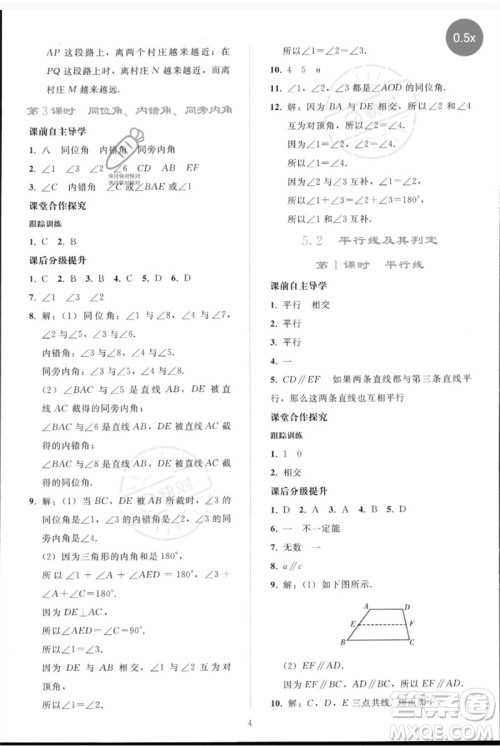 AP 这段路上，离两个村庄越来越近；在
PQ 这段路上，离村庄 N 越来越近，而离
村庄 M 越来越远.
第3课时 同位角、内错角、同旁内角
课前自主导学
1. 八 同位角 内错角 同旁内角
2. ∠1 ∠2 ∠6 CD AB EF
3. ∠C 内错角 ∠BAE 或∠C
课堂合作探究
跟踪训练
1. C 2. B
课后分级提升
1. C 2. B 3. C 4. B 5. D 6. D
7. ∠1 ∠3
8. 解：（1）同位角：∠1 与∠7，∠4 与
∠5，∠2 与∠8.
内错角：∠3 与∠5，∠4 与∠7.
同旁内角：∠3 与∠7，∠4 与∠8.
（2）∠BAC 与∠7 是直线 AB，DE 被
直线 AC 截得的同旁内角.
∠BAC 与∠6 是直线 AB，DE 被直线 AC
截得的内错角.
∠BAC 与∠8 是直线 AB，DE 被直线 AC
截得的同位角.
9. 解：（1）当 BC，DE 被 AB 所截时，∠3 的
同位角是∠1，内错角是∠5，同旁内角是
∠4，共 3 对角.
（2）因为三角形的内角和是 180°，
所以∠1+∠2+∠AED=180°.
因为 DE⊥AC，
所以∠AED=90°.
所以∠1+∠2=90°.
因为∠1 与∠5 互为对顶角，
所以∠1=∠5.
所以∠2+∠5=90°.
所以∠1=∠2.
10. 4 5 n
11. ∠1 和∠2 是∠AOD 的同位角.
12. 解：因为 BA 与 DE 相交，
所以∠1=∠4.
因为∠1 与∠3 互补，
所以∠1+∠3=180°.
所以∠4+∠3=180°.
所以∠3 与∠4 互补.
因为∠1 与∠2 互补，
所以∠1+∠2=180°.
所以∠2=∠3.
5.2 平行线及其判定
第1课时 平行线
课前自主导学
1. 平行 相交
2. 平行
4. 一
5. CD∥EF 如果两条直线都与第三条直线平
行，那么这两条直线也互相平行
课堂合作探究
跟踪训练
1. 1 0
2. 相交
课后分级提升
1. D 2. A 3. D 4. B 5. D
6. 一 不一定能
7. 无数 一
8. a∥c
9. 解：（1）如下图所示.
A D
E F
B C
（2）EF∥AD，EF∥BC.
因为 EF∥AD，AD∥BC，
所以 EF∥BC.
10. 解：D，E，F 三点共线.
4
0.5x